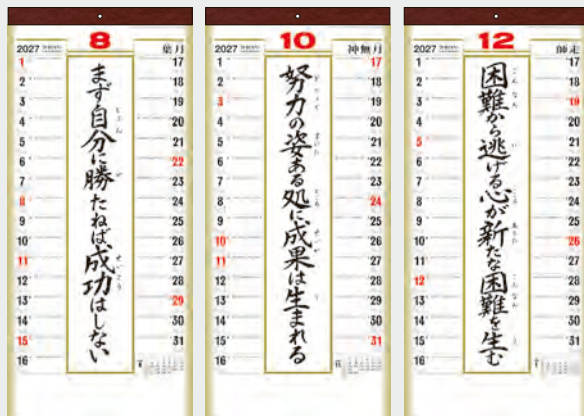 8
2027
葉月
1
2
3
4
5
6
7
8
9
10
11
12
13
14
15
16
まず自分に勝たねば成功はしない
じぶん
せいこう
17
18
19
20
21
22
23
24
25
26
27
28
29
30
31
10
2027
神無月
1
2
3
4
5
6
7
8
9
10
11
12
13
14
15
16
努力の姿ある処に成果は生まれる
17
18
19
20
21
22
23
24
25
26
27
28
29
30
31
12
2027
師走
1
2
3
4
5
6
7
8
9
10
11
12
13
14
15
16
困難から逃げる心が新たな困難を生む
こんなん
こんなん
17
18
19
20
21
22
23
24
25
26
27
28
29
30
31